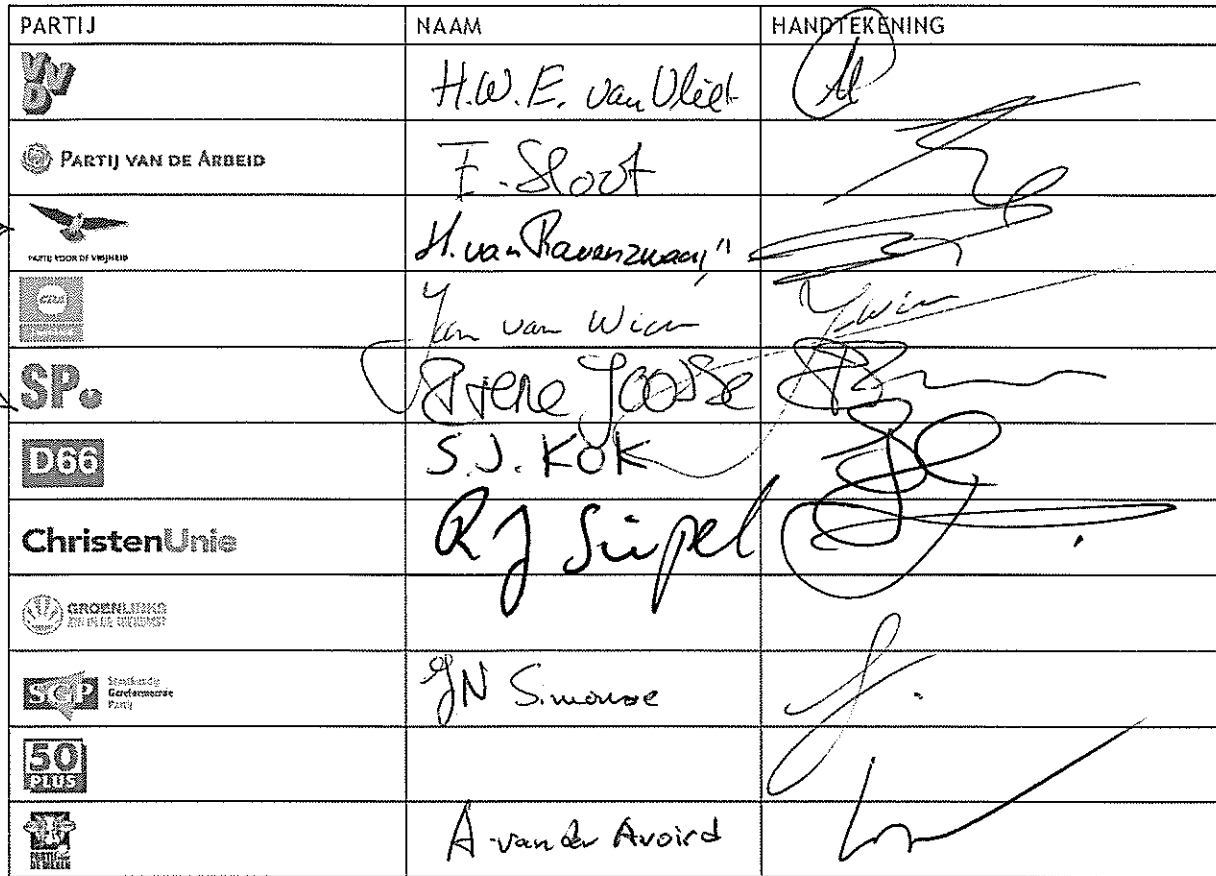 PARTIJ NAAM HANDTEKENING
VVD H.W.E. van Vliet
PARTIJ VAN DE ARBEID F. Sloot
PARTIJ VOOR DE VRIJHEID H. van Ravenzwaaij
CDA Jan van Wien
SP. Joosse
D66 S.J. KOK
ChristenUnie R J Sinpel
GROENLINKS
SGP Staatkundig
Gereformeerde
Partij
JN Simonse
50
PLUS
PARTIJ
DE DIEREN A van der Avoird